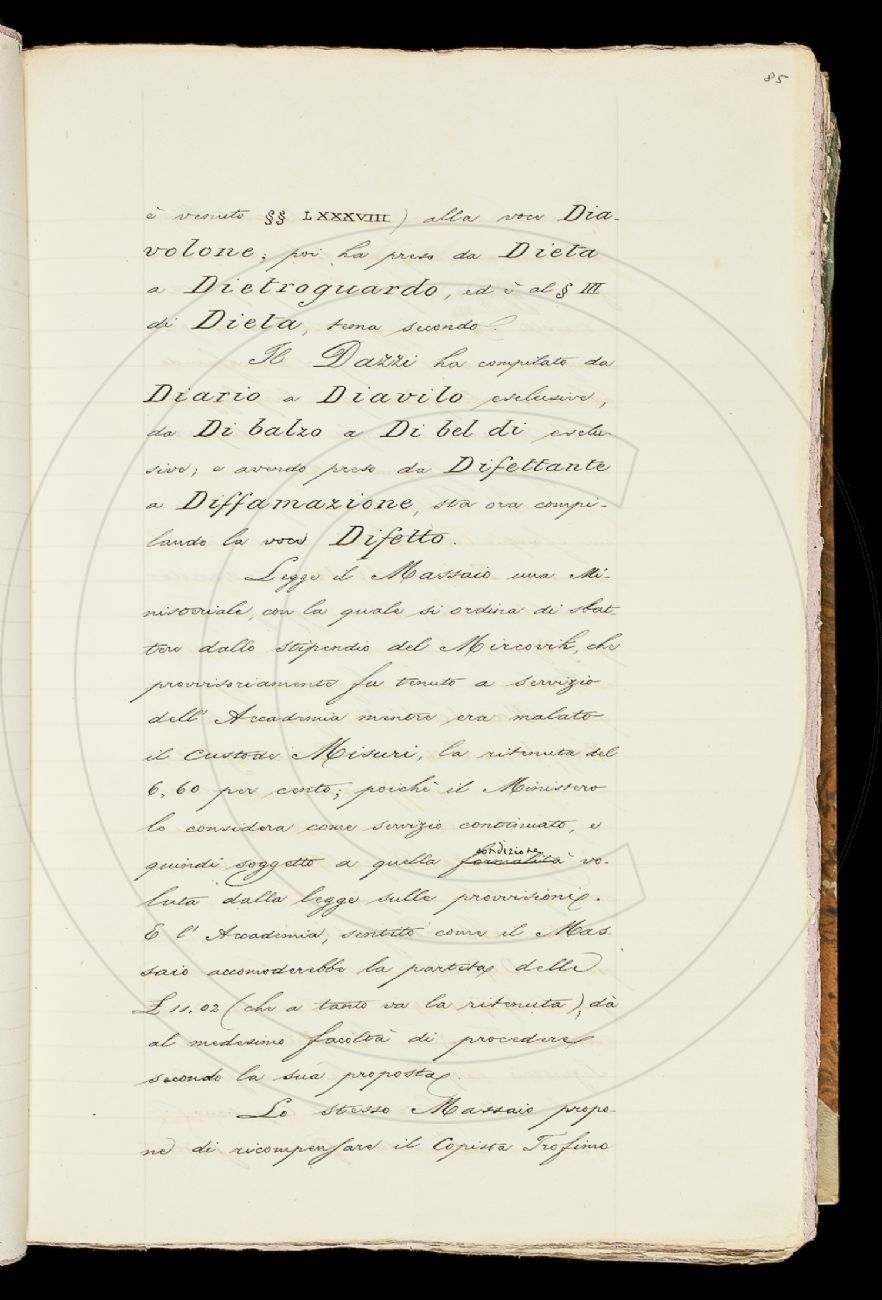 85
è venuto §§ LXXXVIII) alla voce Dia-
volone; poi ha preso da Dieta
a Dietroguardo, ed è al § III
di Dieta, tema secondo.
Il Dazzi ha compilato da
Diario a Diavilo esclusive,
da Di balzo a Di bel di esclu-
sive; e avendo preso da Difettante
a Diffamazione, sta ora compi-
lando la voce Difetto.
Legge il Massaio una Mi-
nisteriale, con la quale si ordina di sbat-
tere dallo stipendio del Mircovik, che
provvisoriamente fu tenuto a servizio
dell' Accademia mentre era malato
il Custode Misuri, la ritenuta del
6,60 per cento; poichè il Ministero
lo considera come servizio continuato, e
quindi soggetto a quella formalità condizione vo-
luta dalla legge sulle provvisioni.
E l' Accademia, sentito come il Mas-
saio accomoderebbe la partita delle
£ 11.02 (che a tanto va la ritenuta), dà
al medesimo facoltà di procedere
secondo la sua proposta.
Lo stesso Massaio propo-
ne di ricompensare il Copista Trofimo